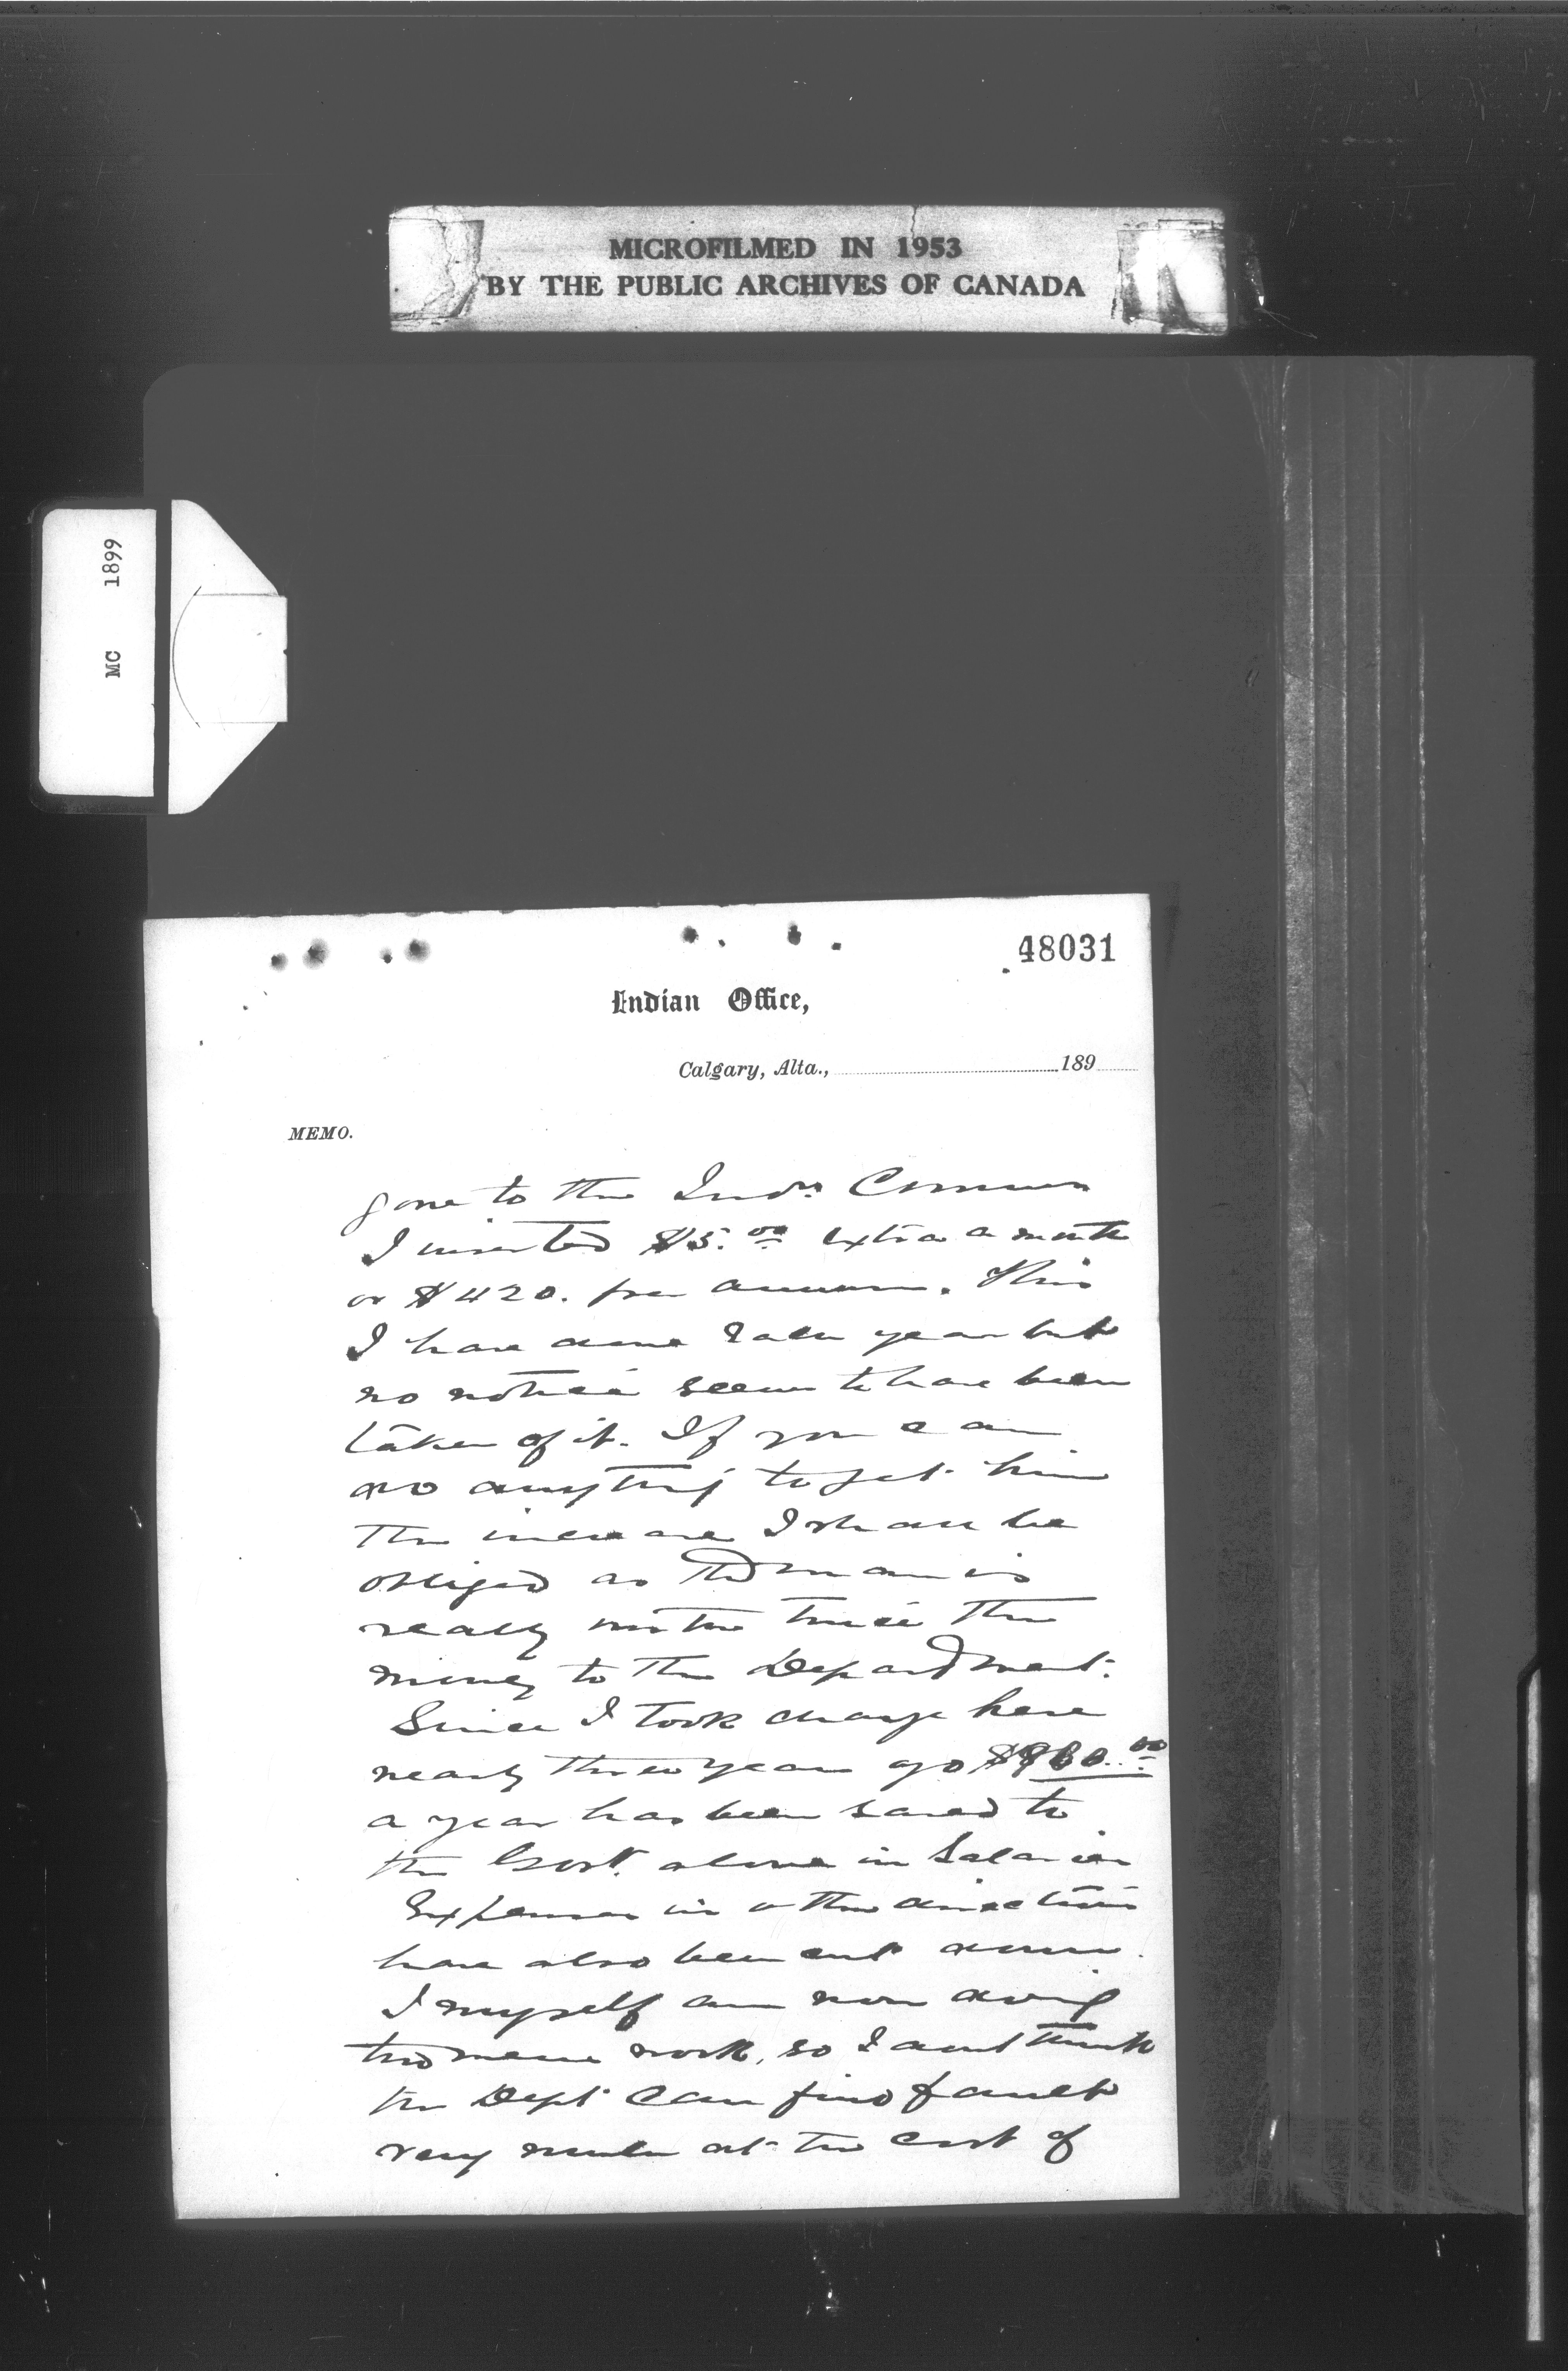 MICROFILMED IN 1953
BY THE PUBLIC ARCHIVES OF CANADA
MC 1899
48031
Indian Office,
Calgary, Alta., 189
MEMO.
gone to the Indn
I inserted $5.00 extra a month
or $420. per annum. This
I have done each year but
no notice seems to have been
taken of it. If you can
do anything to get him
the increase I shall be
obliged as the man is
really worth twice the
money to the Department.
Since I took charge here
nearly three years ago
a year has been saved to
the Govt. alone in Salaries
Expenses in other directions
have also been cut down.
I myself am now doing
two mens work, so I dont think
the Dept. can find fault
very much at the cost of